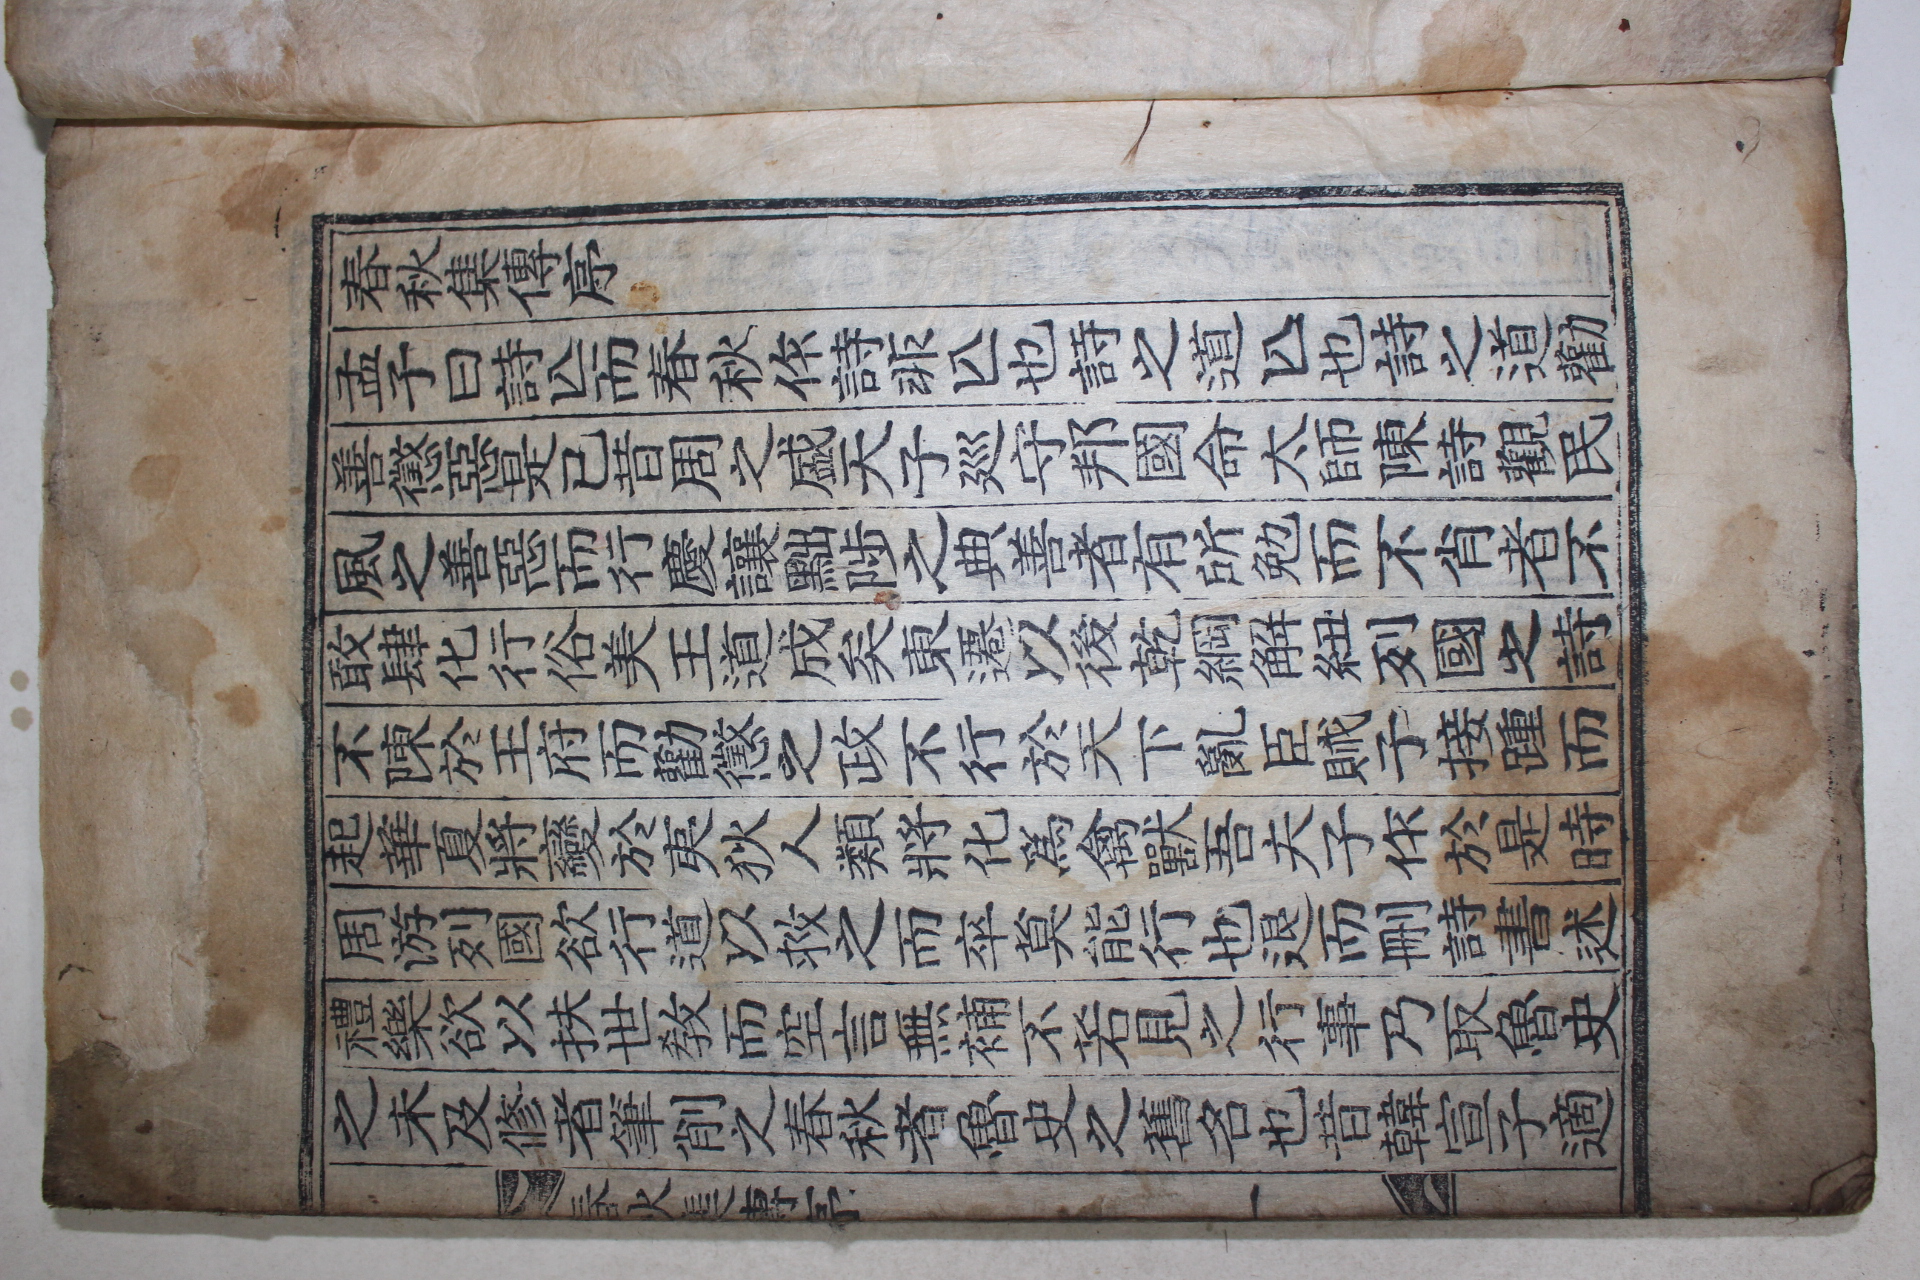 春秋集傳序
孟子曰詩亾而春秋作詩非亾也詩之道亾也詩之道勸
善懲惡是已昔周之盛天子廵守邦國命太師陳詩觀民
風之善惡而行慶讓黜陟之典善者有所勉而不肖者不
敢肆化行俗美王道成矣東遷以後乾綱解紐列國之詩
不陳於王府而勸懲之政不行於天下亂臣賊子接踵而
起華夏將變於夷狄人類將化為禽獸吾夫子作於是時
周游列國欲行道以救之而卒莫能行也退而刪詩書述
禮樂欲以扶世敎而空言無補不若見之行事乃取魯史
之未及修者筆削之春秋者魯史之舊名也昔韓宣子適
春秋集傳序 一